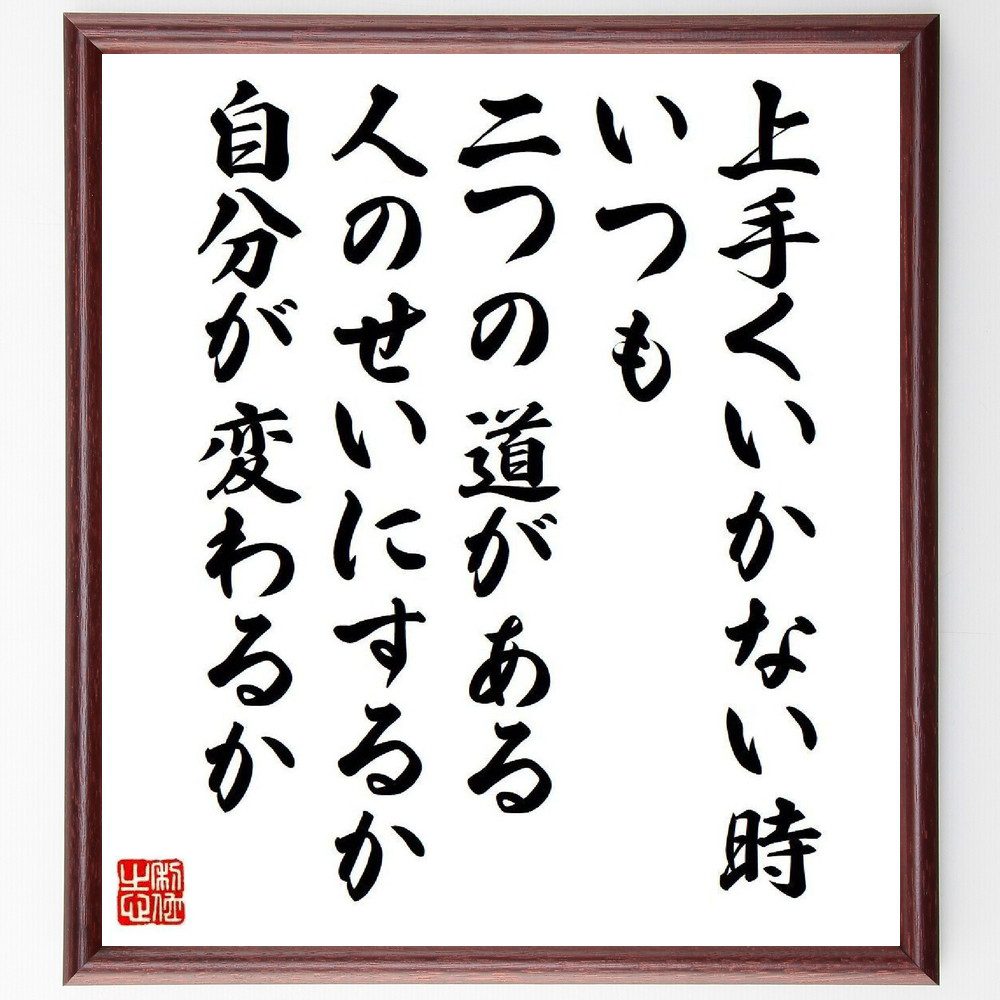 上手くいかない時
いつも
二つの道がある
人のせいにするか
自分が変わるか